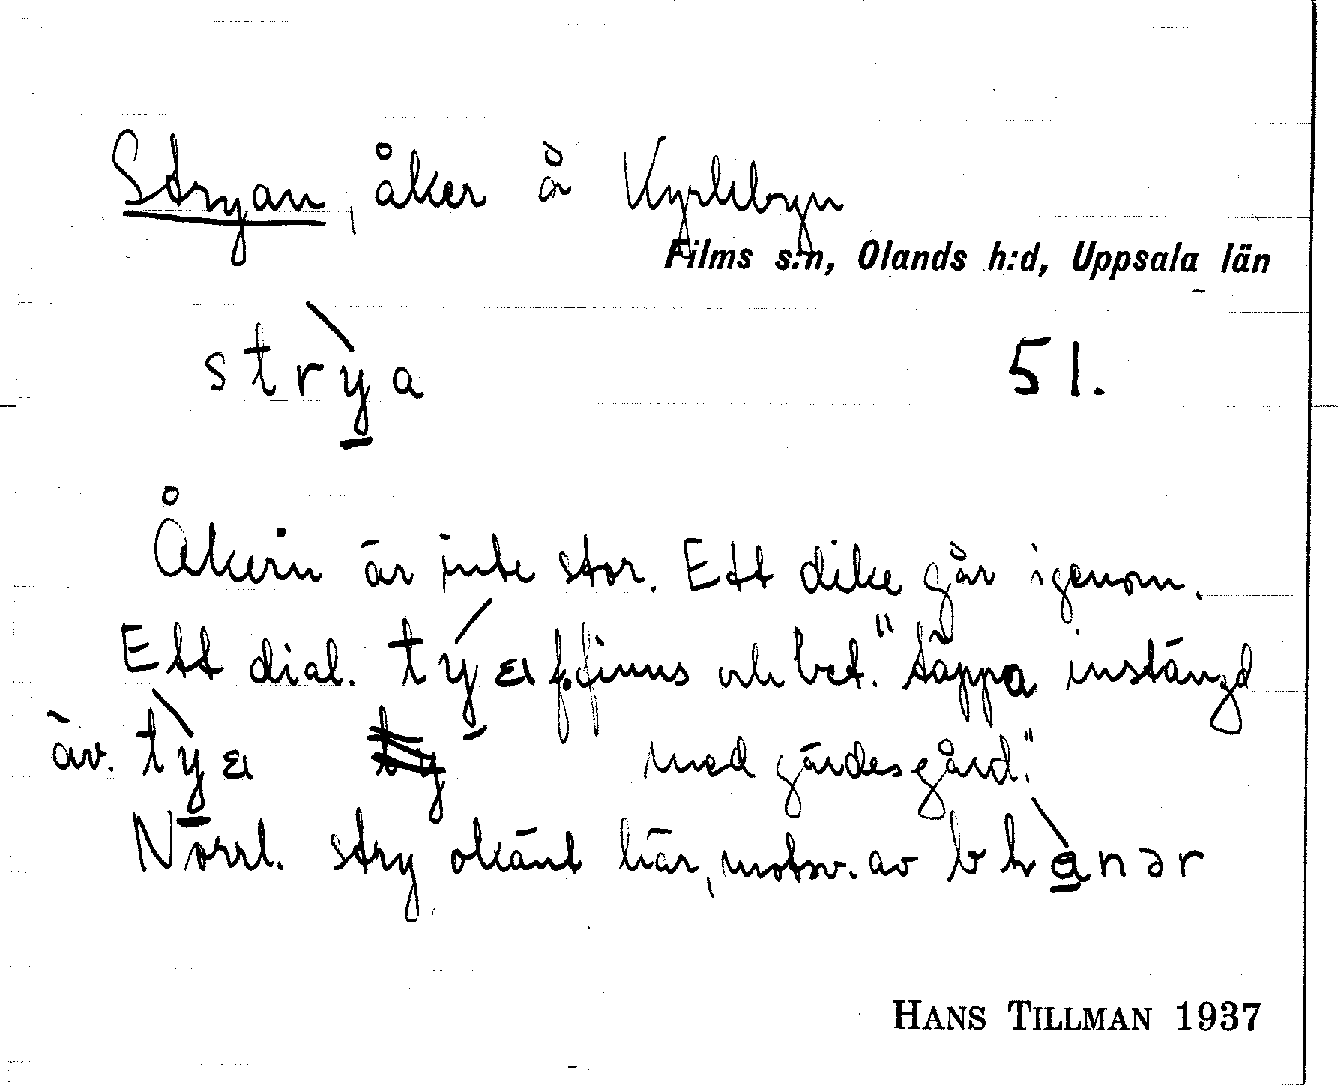 Stryan, åker å Kyrkbyn
Films s:n, Olands h:d, Uppsala län
strỳa 51.
Åkern är inte stor. Ett dike går igenom.
Ett dial. týa f. finns och bet. "täppa instängd
äv. tỳa med gärdesgård."
Norrl. stry okänt här, motsv. av
HANS TILLMAN 1937